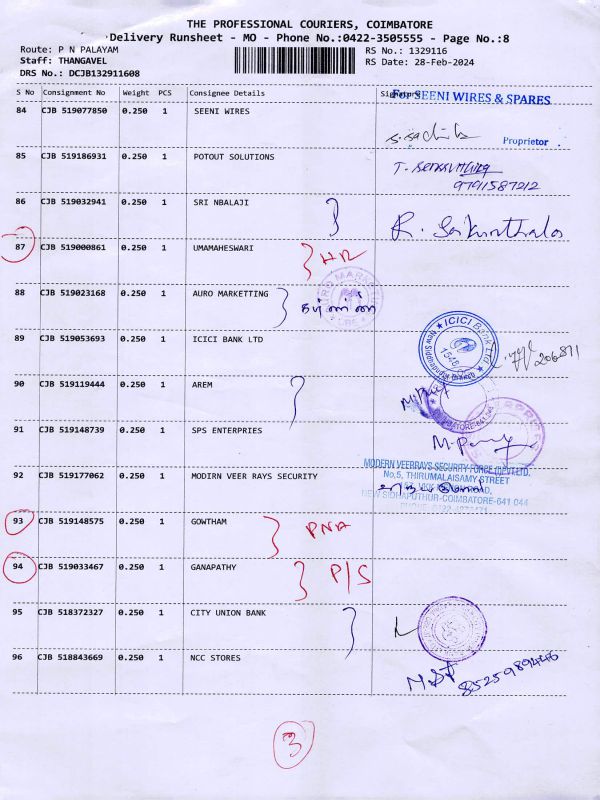 THE PROFESSIONAL COURIERS, COIMBATORE
Delivery Runsheet - MO - Phone No.:0422-3505555 - Page No.:8
Route: P N PALAYAM
RS No.: 1329116
Staff: THANGAVEL
RS Date: 28-Feb-2024
DRS No.: DCJB132911608
S No Consignment No Weight PCS Consignee Details Signature
For SEENI WIRES & SPARES
84 CJB 519077850 0.250 1 SEENI WIRES
Proprietor
85 CJB 519186931 0.250 1 POTOUT SOLUTIONS
9791587212
86 CJB 519032941 0.250 1 SRI NBALAJI
87 CJB 519000861 0.250 1 UMAMAHESWARI
88 CJB 519023168 0.250 1 AURO MARKETTING
89 CJB 519053693 0.250 1 ICICI BANK LTD
ICICI Bank Ltd
New Siddhapudur
206811
90 CJB 519119444 0.250 1 AREM
91 CJB 519148739 0.250 1 SPS ENTERPRIES
92 CJB 519177062 0.250 1 MODIRN VEER RAYS SECURITY
MODERN VEERRAYS SECURITY FORCE (I)PVT.LTD.
No,5, THIRUMALAISAMY STREET
NEW SIDHAPUTHUR-COIMBATORE-641 044
93 CJB 519148575 0.250 1 GOWTHAM
PNA
94 CJB 519033467 0.250 1 GANAPATHY
P/S
95 CJB 518372327 0.250 1 CITY UNION BANK
96 CJB 518843669 0.250 1 NCC STORES
3